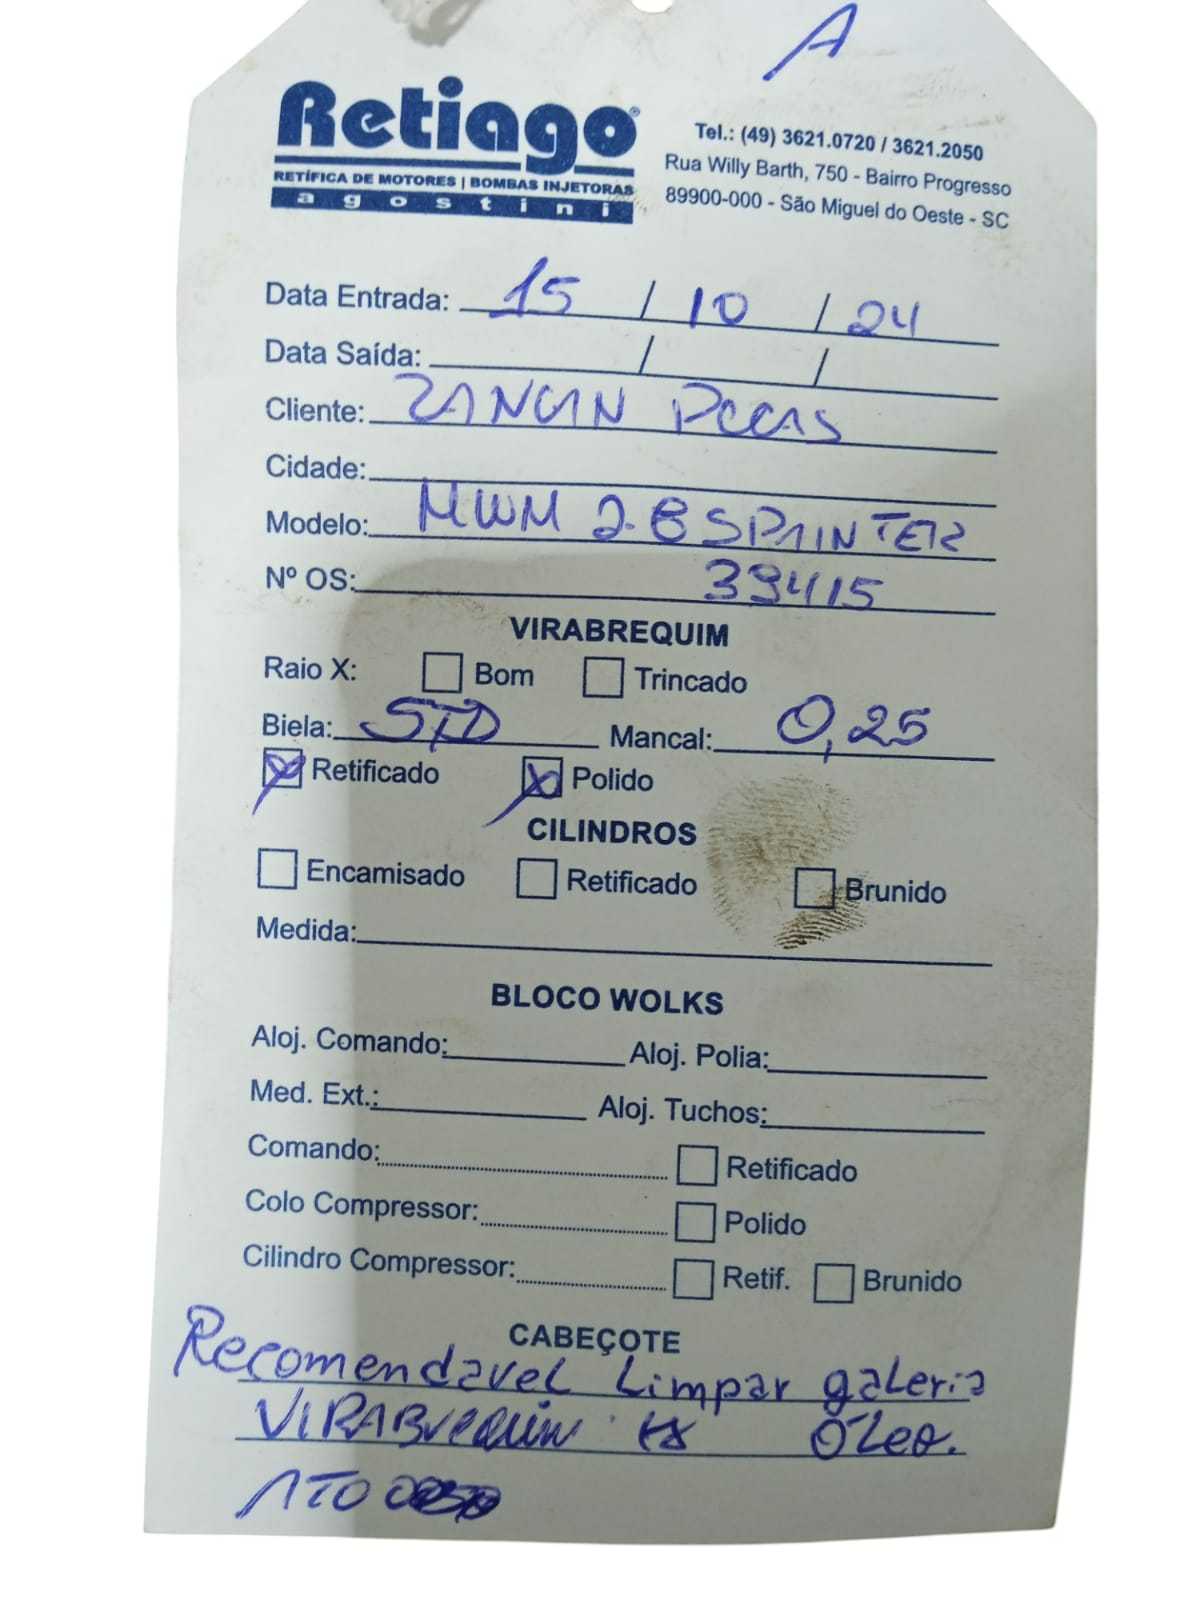 A
Retiago®
RETÍFICA DE MOTORES | BOMBAS INJETORAS
agostini
Tel.: (49) 3621.0720 / 3621.2050
Rua Willy Barth, 750 - Bairro Progresso
89900-000 - São Miguel do Oeste - SC
Data Entrada: 15 / 10 / 24
Data Saída: / /
Cliente: ZANCAN PECAS
Cidade:
Modelo: MWM 2.8 SPRINTER
Nº OS: 39415
VIRABREQUIM
Raio X: Bom Trincado
Biela: STD Mancal: 0,25
Retificado Polido
CILINDROS
Encamisado Retificado Brunido
Medida:
BLOCO WOLKS
Aloj. Comando: Aloj. Polia:
Med. Ext.: Aloj. Tuchos:
Comando: Retificado
Colo Compressor: Polido
Cilindro Compressor: Retif. Brunido
CABEÇOTE
Recomendavel Limpar galeria
VIRABrequim ÓLeo.